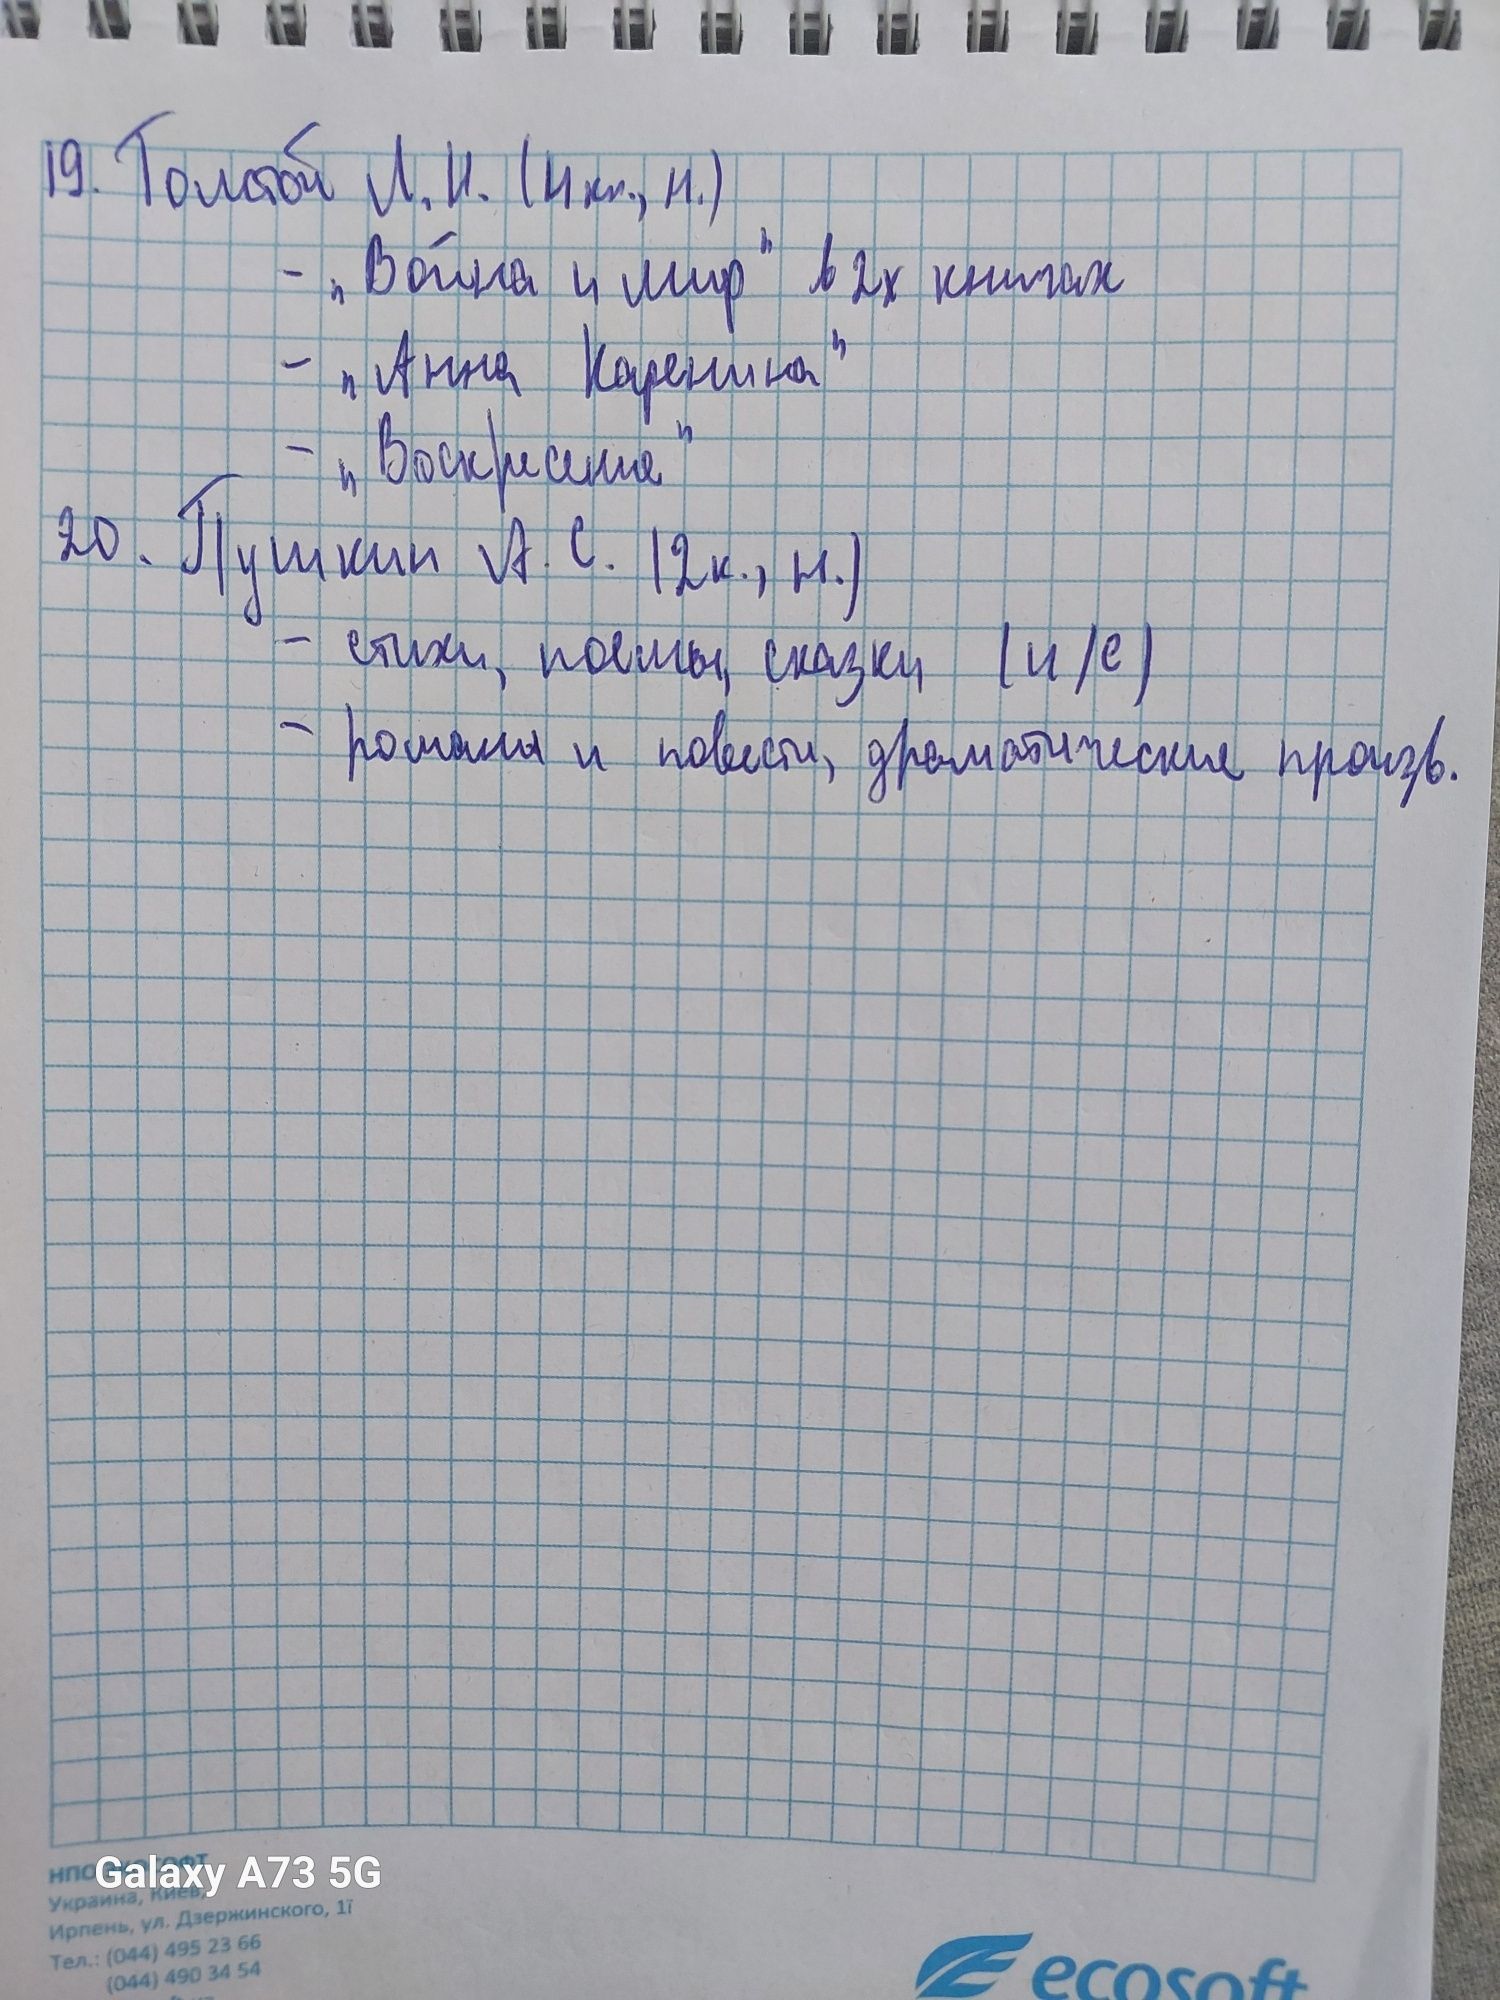 19. Толстой Л. Н. (4 кн., н.)
- „Война и мир" в 2х книгах
- „Анна Каренина"
- „Воскресение"
20. Пушкин А. С. (2 к., н.)
- стихи, поэмы, сказки (н/с)
- романы и повести, драматические произв.
Galaxy A73 5G
Украина, Киев,
Ирпень, ул. Дзержинского, 1ї
Тел.: (044) 495 23 66
(044) 490 34 54
ecosoft